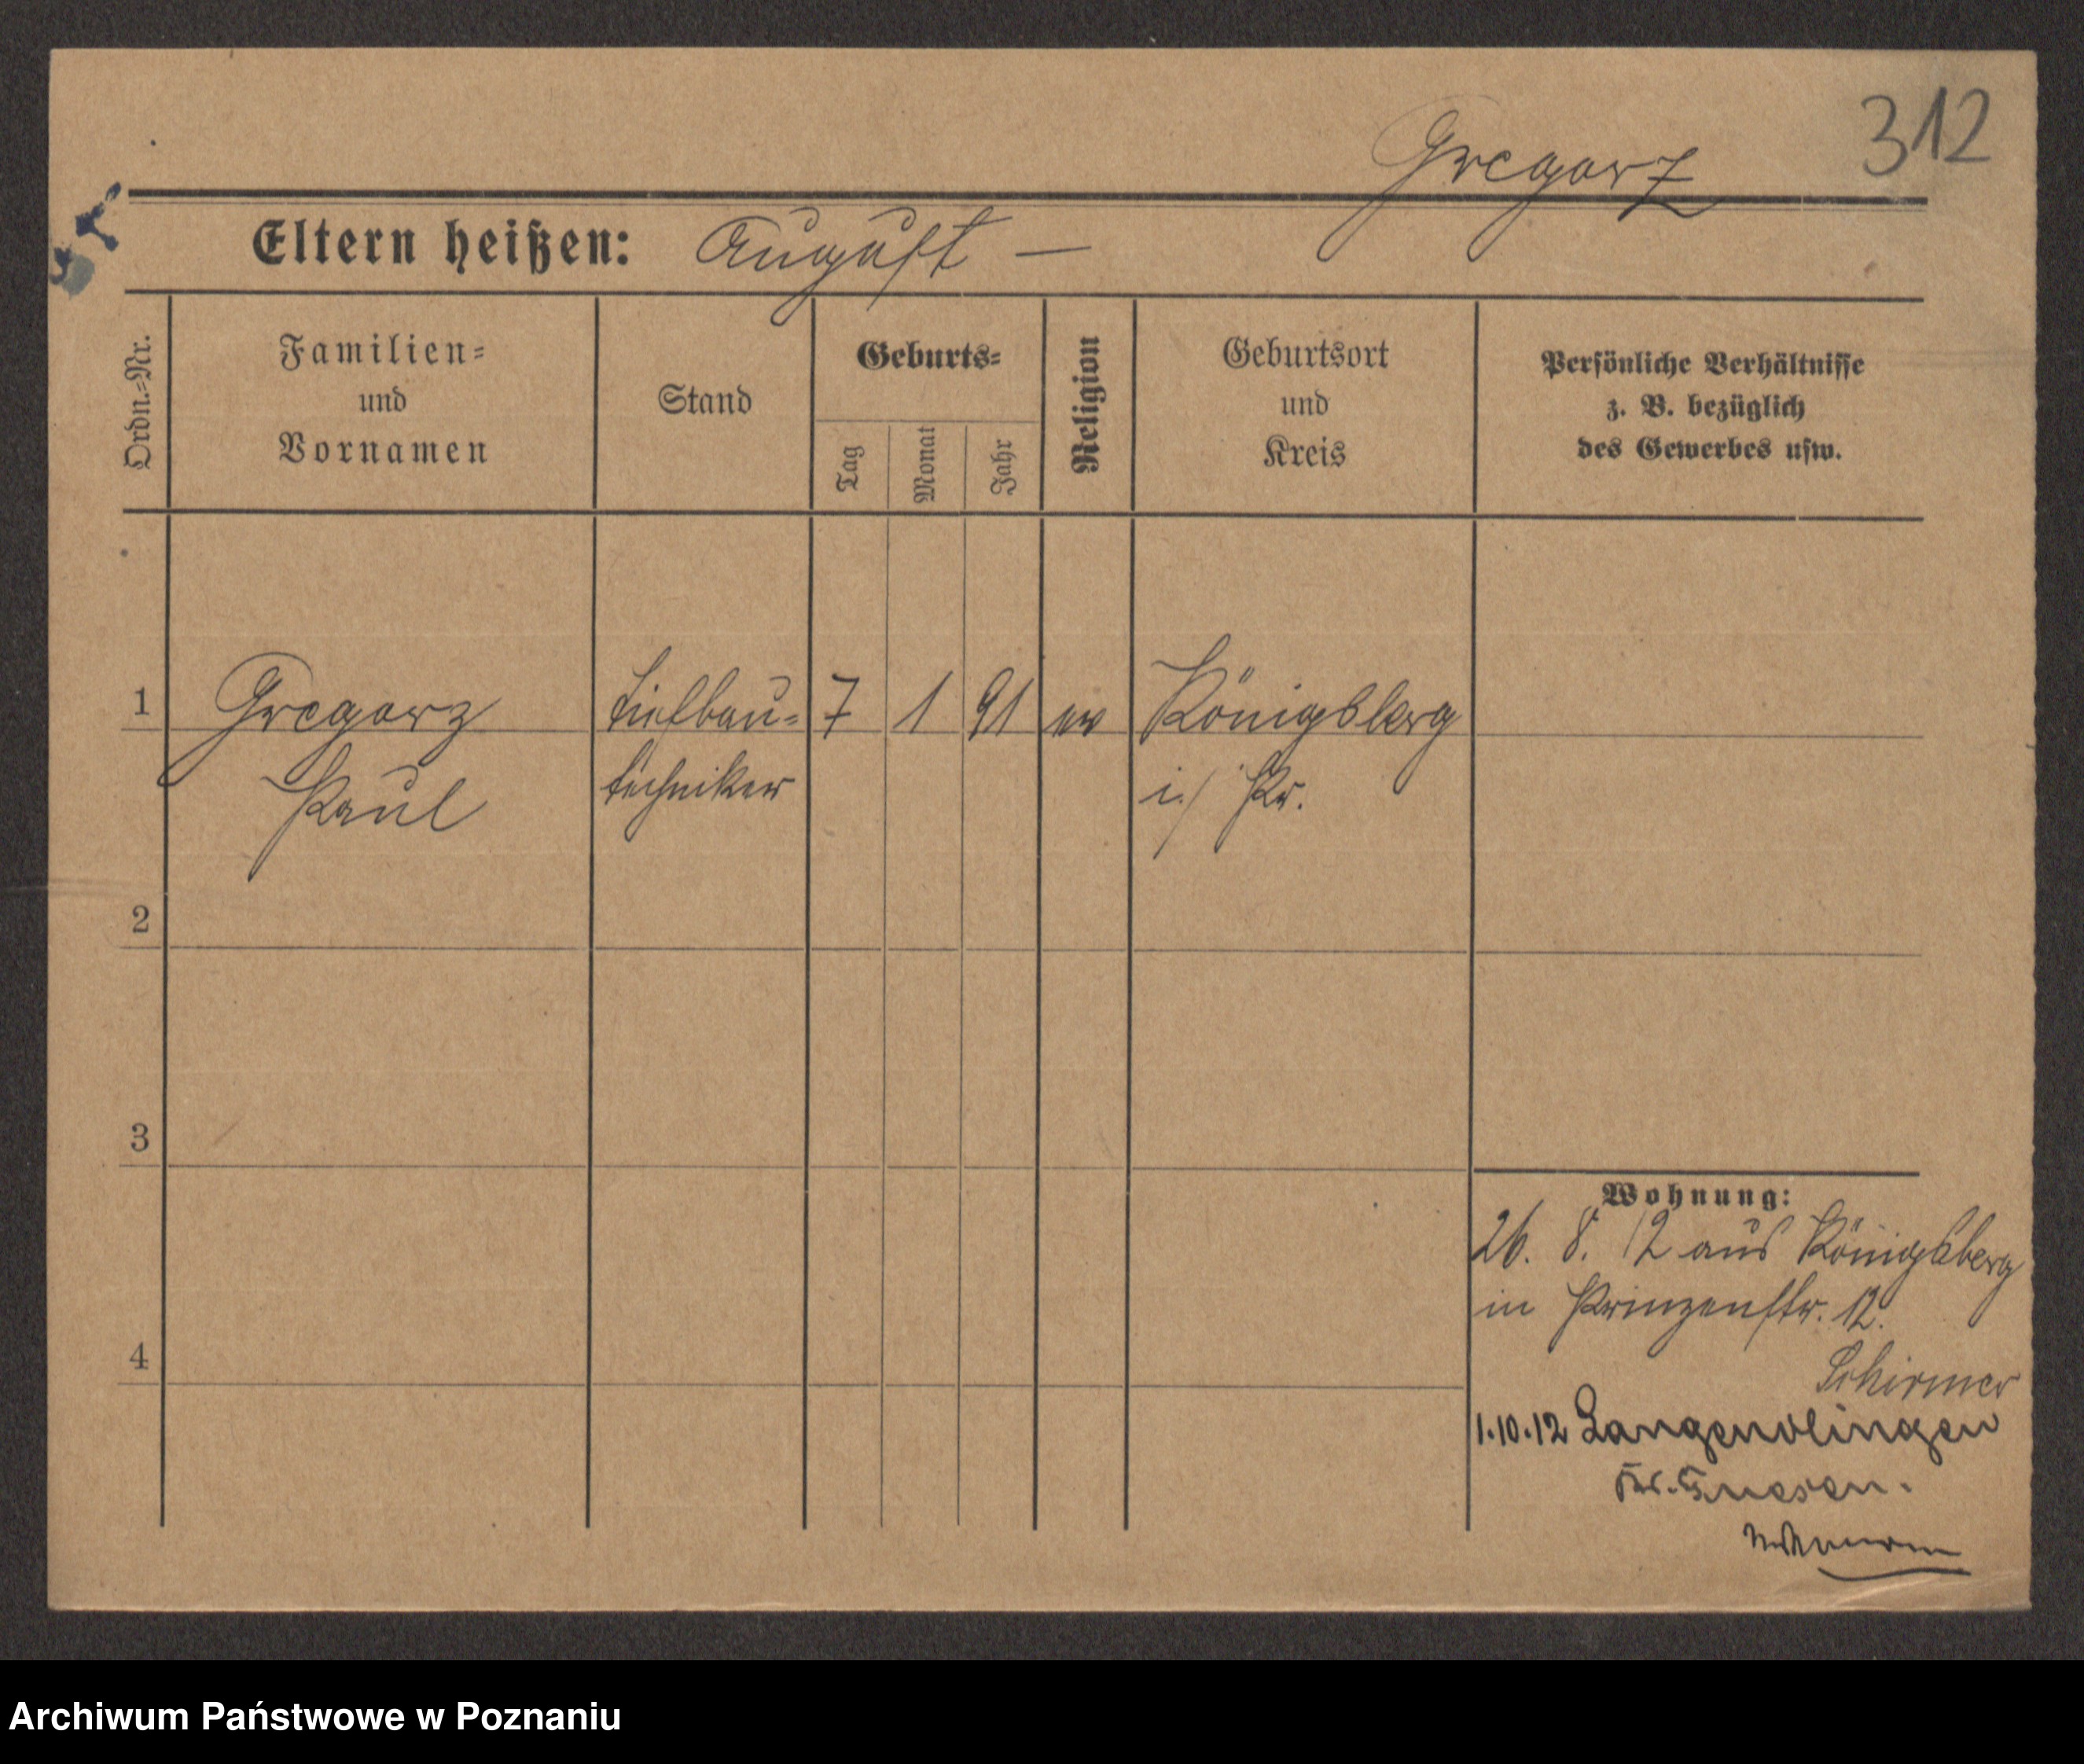 312
Gregorz
Eltern heißen: August —
Ordn.=Nr.
Familien=
und
Vornamen
Stand
Geburts=
Tag
Monat
Jahr
Religion
Geburtsort
und
Kreis
Persönliche Verhältnisse
z. B. bezüglich
des Gewerbes usw.
1 Gregorz Tiefbau= 7 1 91 ev Königsberg
Paul techniker i./ Pr.
2
3
Wohnung:
26. 8. 12 aus Königsberg
in Prinzenstr. 12.
4
Schirmer
1.10.12 Langenolingen
Kr. Gnesen.
Archiwum Państwowe w Poznaniu